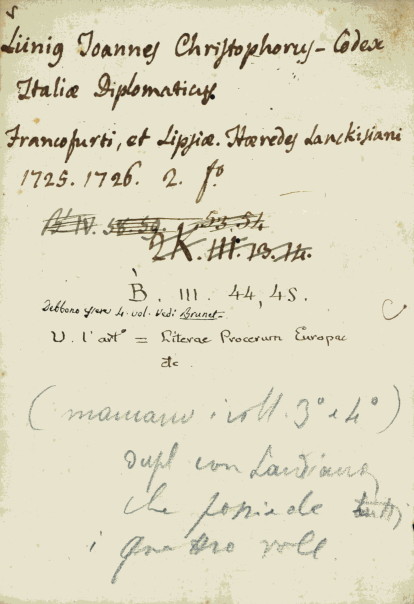 Lünig Joannes Christophorus - Codex
Italiæ Diplomaticus.
Francofurti, et Lipsiæ. Hæredes Lanckisiani
1725. 1726. 2. fo.
IV. 58 59. 53. 54
2K. III. 13. 14.
B. III. 44, 45.
Debbono essere 4. vol. Vedi Brunet =
V. l'arto = Literae Procerum Europae
etc
(mancano i voll. 3° e 4°)
dupl con Landiana
che possiede tutti
i quattro voll.